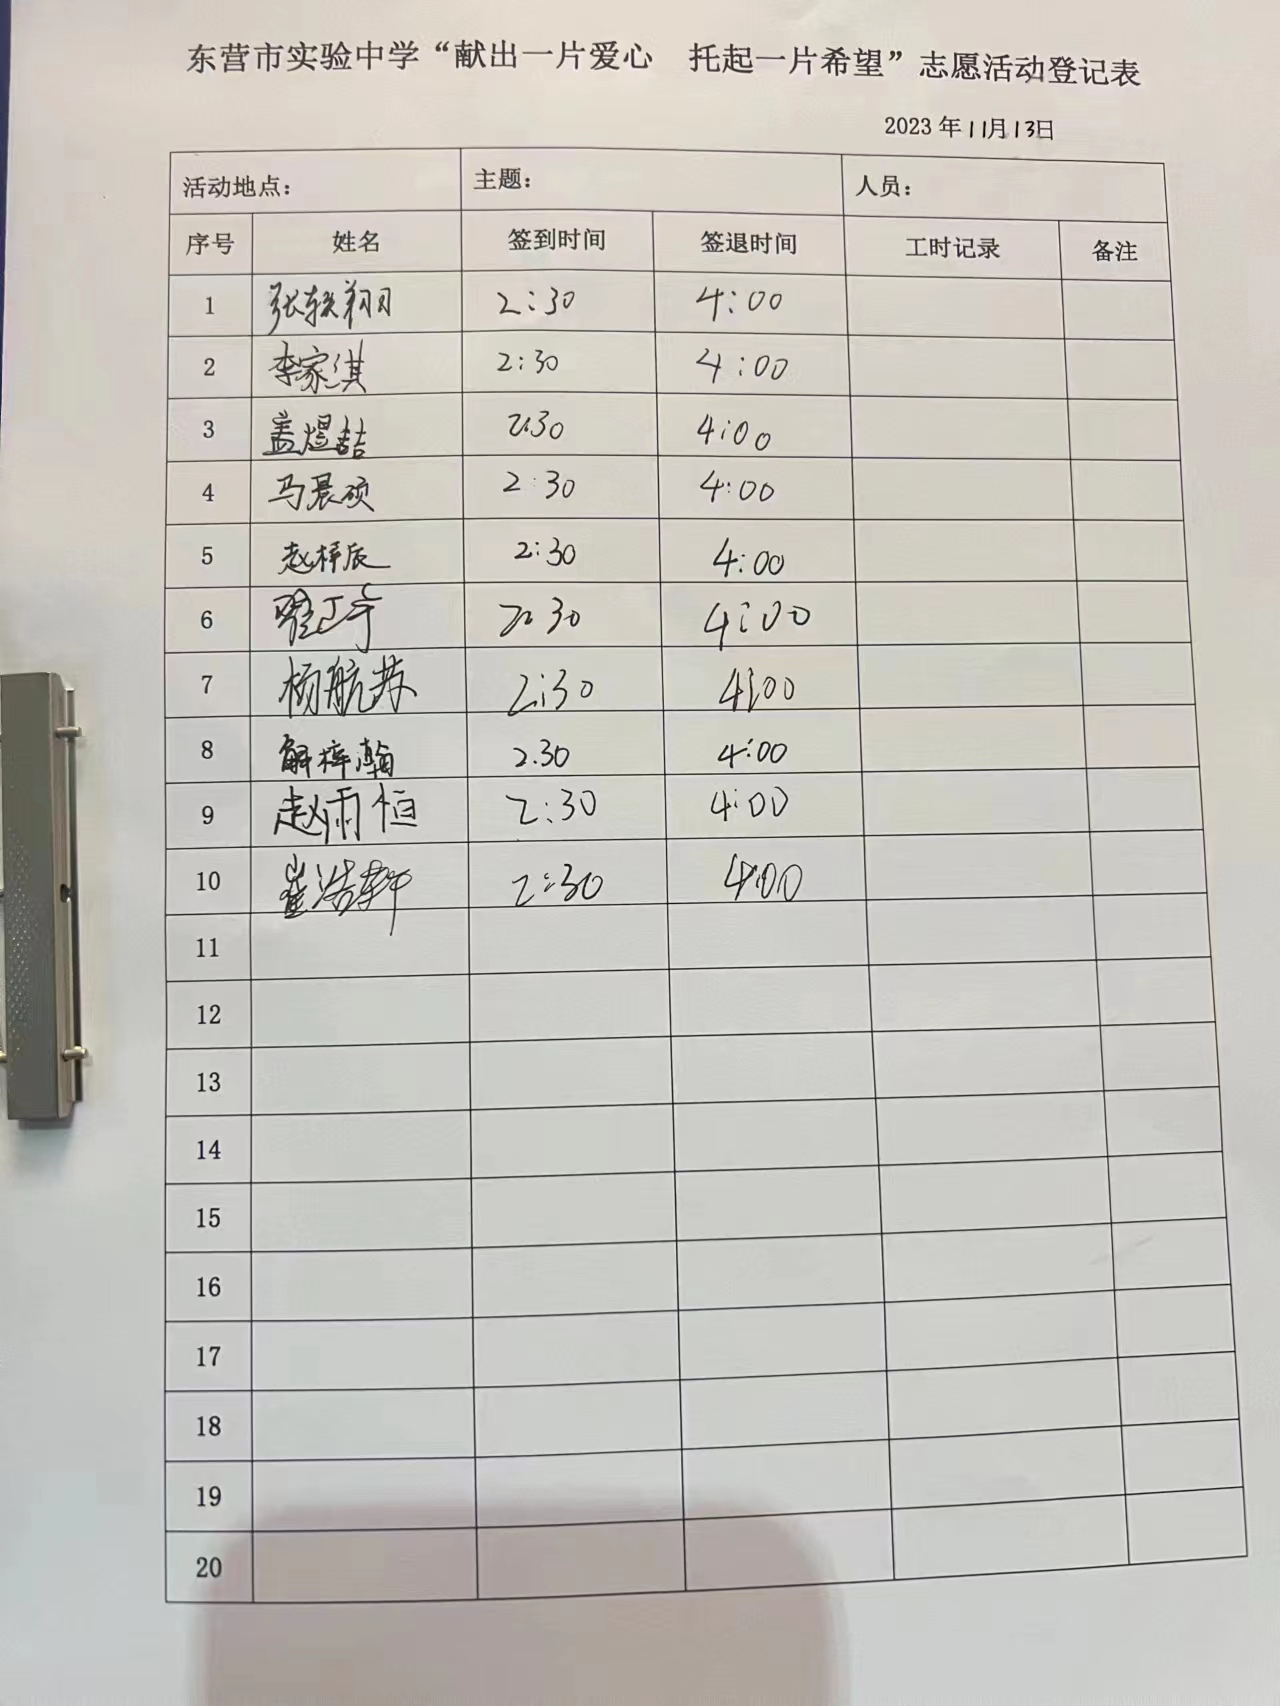 东营市实验中学“献出一片爱心 托起一片希望”志愿活动登记表
2023 年 11月 13日
活动地点： 主题： 人员：
序号 姓名 签到时间 签退时间 工时记录 备注
1 张轶翔 2:30 4:00
2 李家淇 2:30 4:00
3 盖煜喆 2:30 4:00
4 马晨硕 2:30 4:00
5 赵梓辰 2:30 4:00
6 2:30 4:00
7 杨航苏 2:30 4:00
8 解梓瀚 2.30 4:00
9 赵雨恒 2:30 4:00
10 崔浩轩 2:30 4:00
11
12
13
14
15
16
17
18
19
20